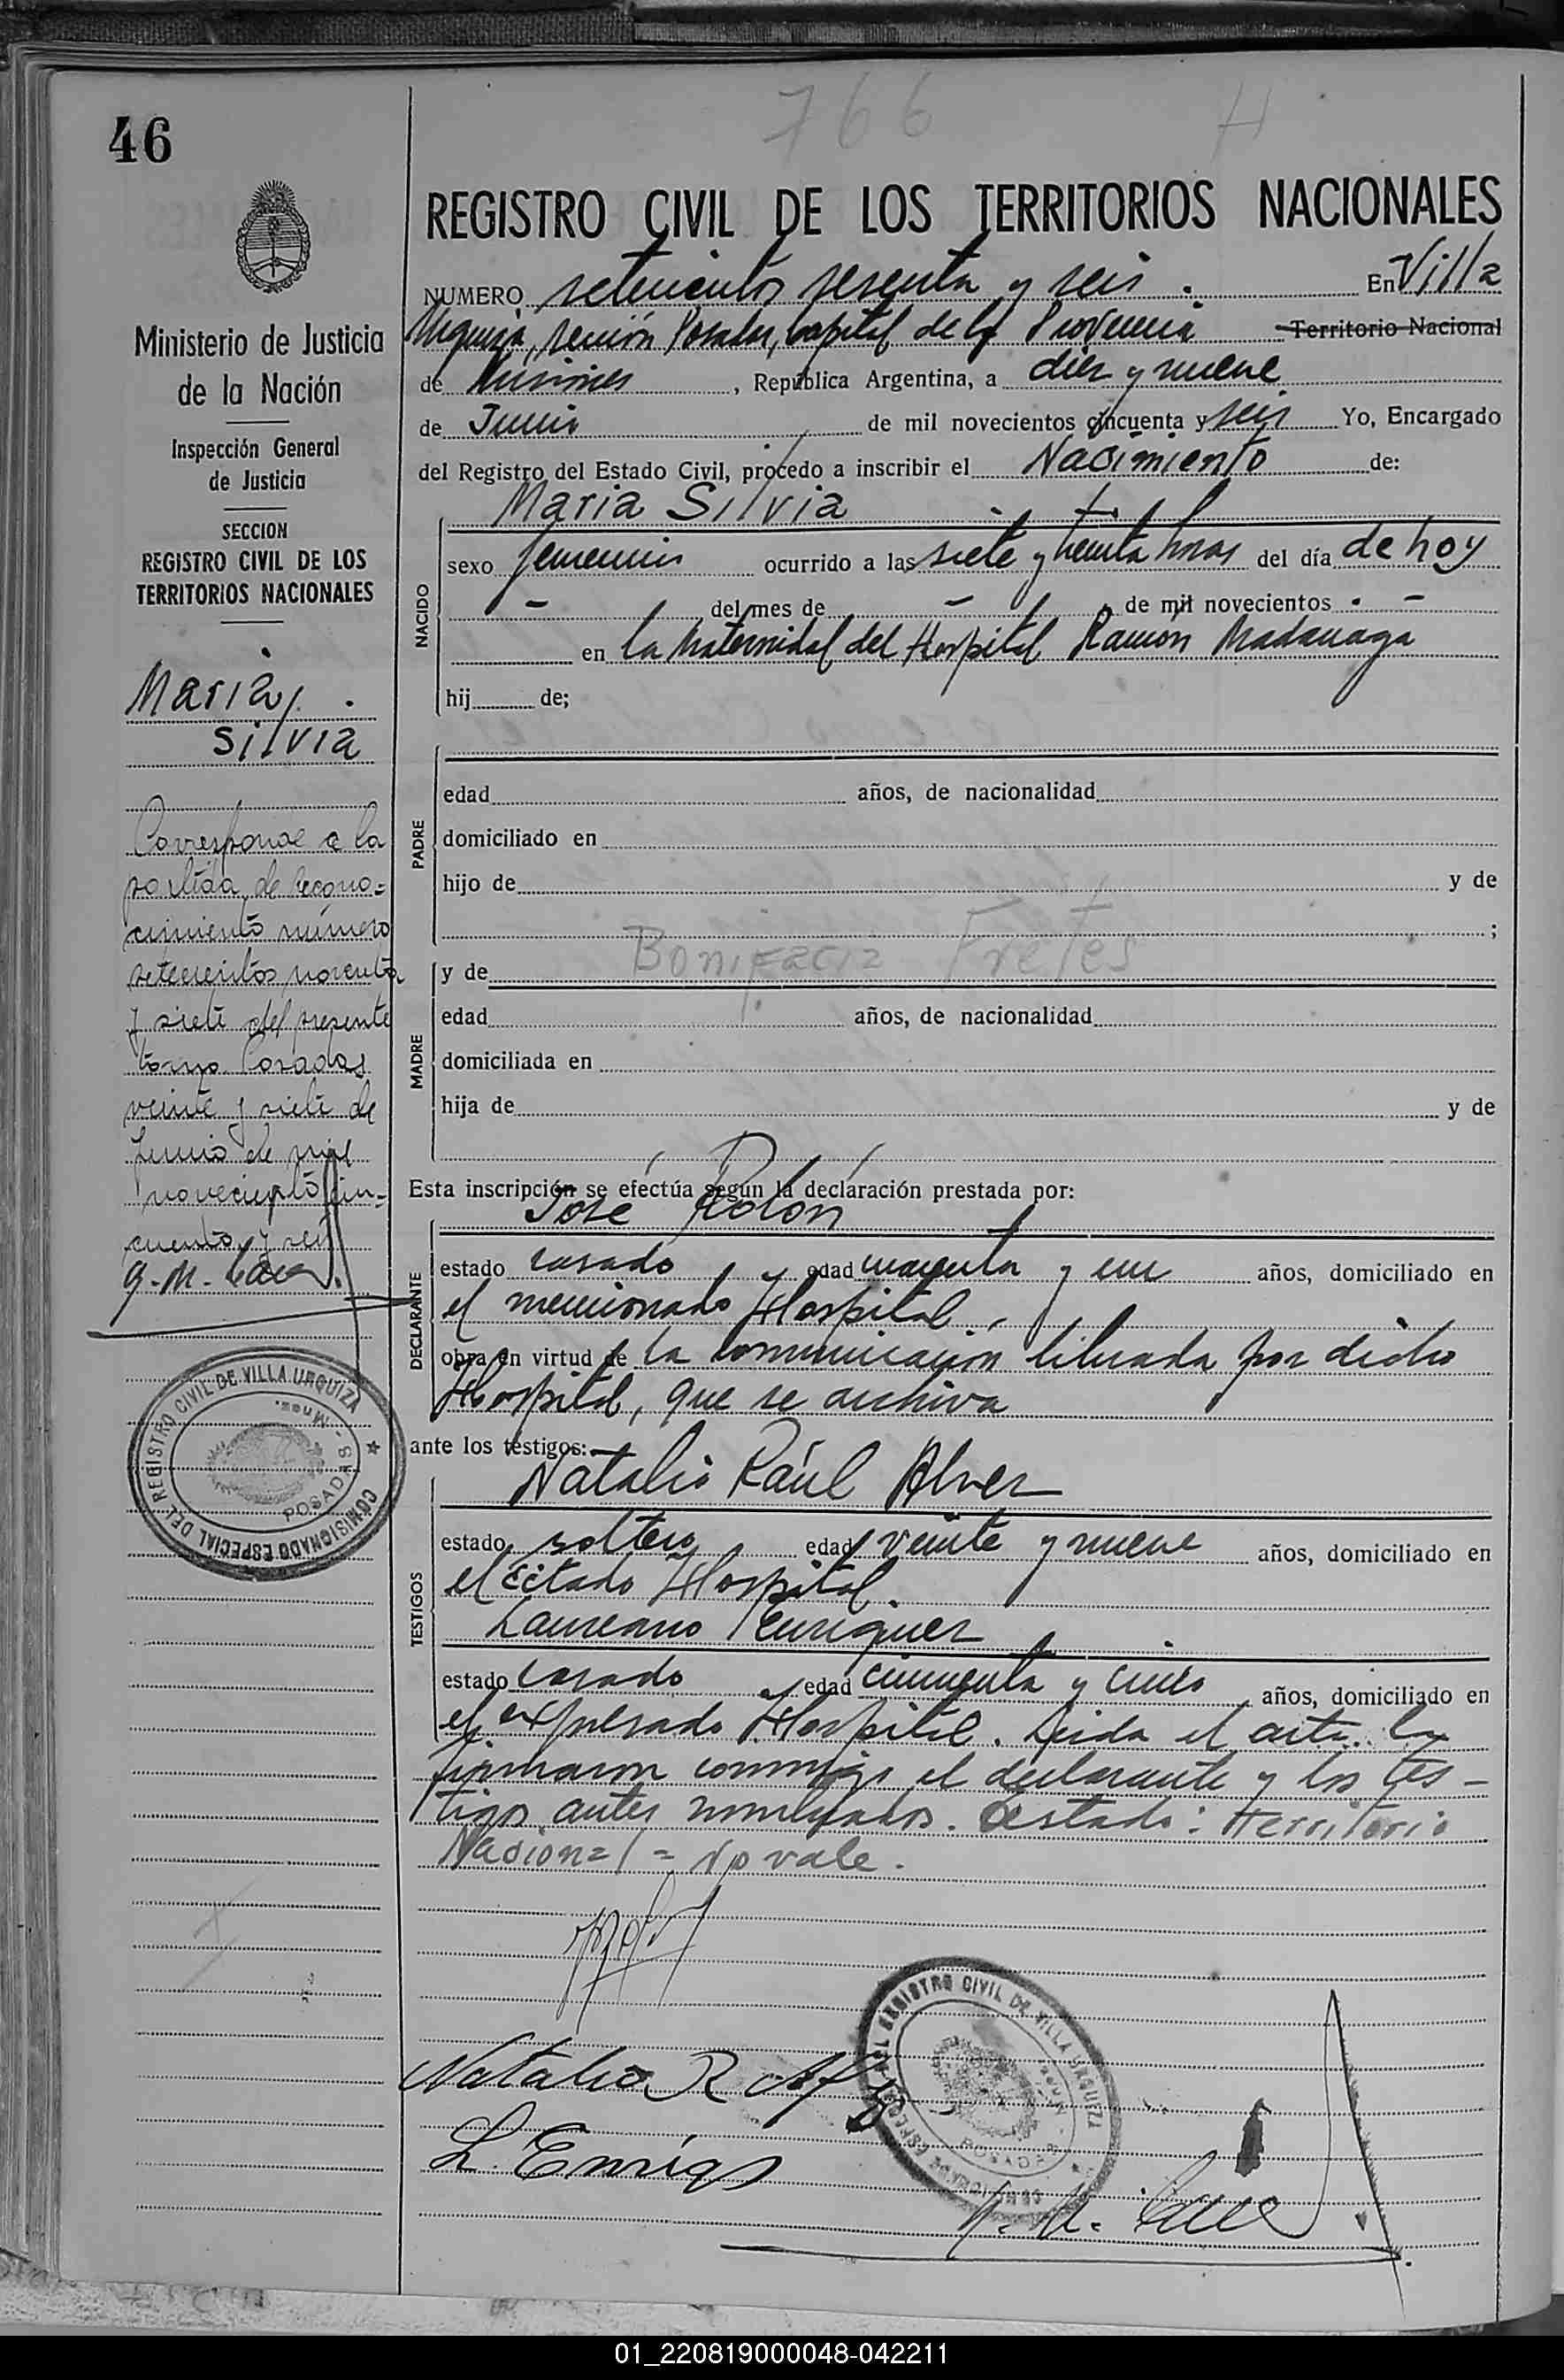 766 H
46
REGISTRO CIVIL DE LOS TERRITORIOS NACIONALES
NUMERO setecientos sesenta y seis. En Villa
Urquiza, sección Posadas, Capital de la Provincia Territorio Nacional
de Misiones, República Argentina, a diez y nueve
de Junio de mil novecientos cincuenta y seis Yo, Encargado
del Registro del Estado Civil, procedo a inscribir el Nacimiento de:
Maria Silvia
NACIDO
sexo femenino ocurrido a las siete y treinta horas del día de hoy
- del mes de - de mil novecientos -
en la Maternidad del Hospital Ramón Madariaga
hij de;
PADRE
edad años, de nacionalidad
domiciliado en
hijo de y de
;
y de Bonifacia Fretes
MADRE
edad años, de nacionalidad
domiciliada en
hija de y de
Esta inscripción se efectúa según la declaración prestada por:
José Rolón
DECLARANTE
estado casado edad cuarenta y un años, domiciliado en
el mencionado Hospital.
obra en virtud de la comunicación librada por dicho
Hospital, que se archiva
ante los testigos:
Natalio Raúl Alvez
TESTIGOS
estado soltero edad veinte y nueve años, domiciliado en
el citado Hospital.
Laureano Enriquez
estado casado edad cincuenta y cinco años, domiciliado en
el expresado Hospital. Leida el acta la
firmaron conmigo el declarante y los tes-
tigos antes nombrados. Testado: Territorio
Nacional = No vale.
Natalio R.
L. Enriqz
REGISTRO CIVIL DE VILLA URQUIZA
POSADAS
Ministerio de Justicia
de la Nación
Inspección General
de Justicia
SECCION
REGISTRO CIVIL DE LOS
TERRITORIOS NACIONALES
Maria
Silvia
Corresponde a la
partida de recono-
cimiento número
setecientos noventa
y siete del presente
tomo. Posadas
veinte y siete de
Junio de mil
novecientos cin-
cuenta y seis
COMISIONADO ESPECIAL DEL REGISTRO CIVIL DE VILLA URQUIZA
POSADAS - Mnes.
01_220819000048-042211